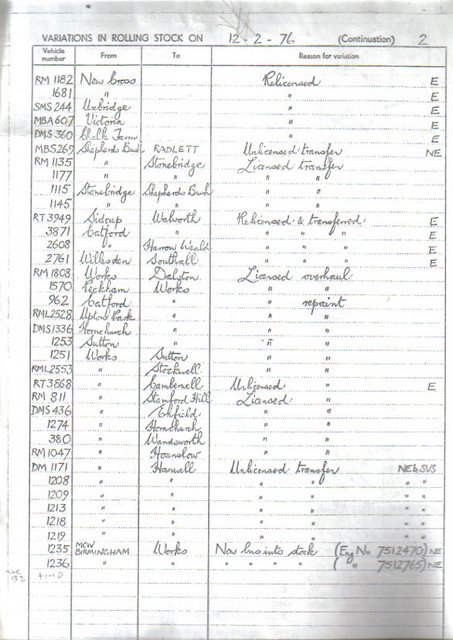 VARIATIONS IN ROLLING STOCK ON 12-2-76 (Continuation) 2
Vehicle number From To Reason for variation
RM 1182 New Cross Relicensed E
1681 " " E
SMS 244 Uxbridge " E
MBA 607 Victoria " E
DMS 360 Chalk Farm " E
MBS 269 Shepherds Bush RADLETT Unlicensed transfer NE
RM 1135 " Stonebridge Licensed transfer
1177 " " " "
1115 Stonebridge Shepherds Bush " "
1145 " " " "
RT 3949 Sidcup Walworth Relicensed & transferred E
3871 Catford " " " " E
2608 " Harrow Weald " " " E
2761 Willesden Southall " " " E
RM 1808 Works Dalston Licensed overhaul
1570 Peckham Works " "
962 Catford " " repaint
RML 2528 Upton Park " " "
DMS 1336 Hornchurch " " "
1253 Sutton " " "
1251 Works Sutton " "
RML 2553 " Stockwell " "
RT 3568 " Camberwell Unlicensed " E
RM 811 " Stamford Hill Licensed "
DMS 436 " Enfield " "
1274 " Hornchurch " "
380 " Wandsworth " "
RM 1047 " Hounslow " "
DM 1171 " Hanwell Unlicensed transfer NE & SVS
1208 " " " " " "
1209 " " " " " "
1213 " " " " " "
1218 " " " " " "
1219 " " " " " "
1235 MCW BIRMINGHAM Works New bus into stock (Eng No 7512470) NE
1236 " " " " " " ( " 7512765) NE
132